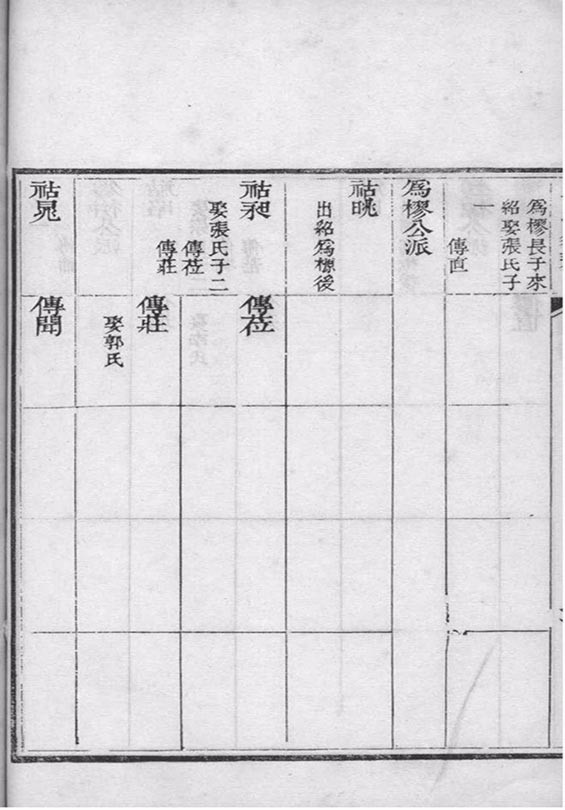 為樛長子來
紹娶張氏子
一
傳直
為樛公派
祜晀
出紹為標後
祜昶
娶張氏子二
傳莅
傳莊
傳莅
傳莊
娶郭氏
祜晁
傳聞